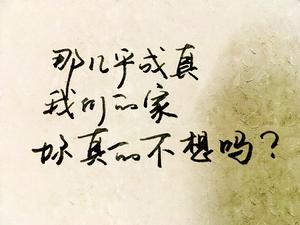 那几乎成真
我们的家
妳真的不想吗？